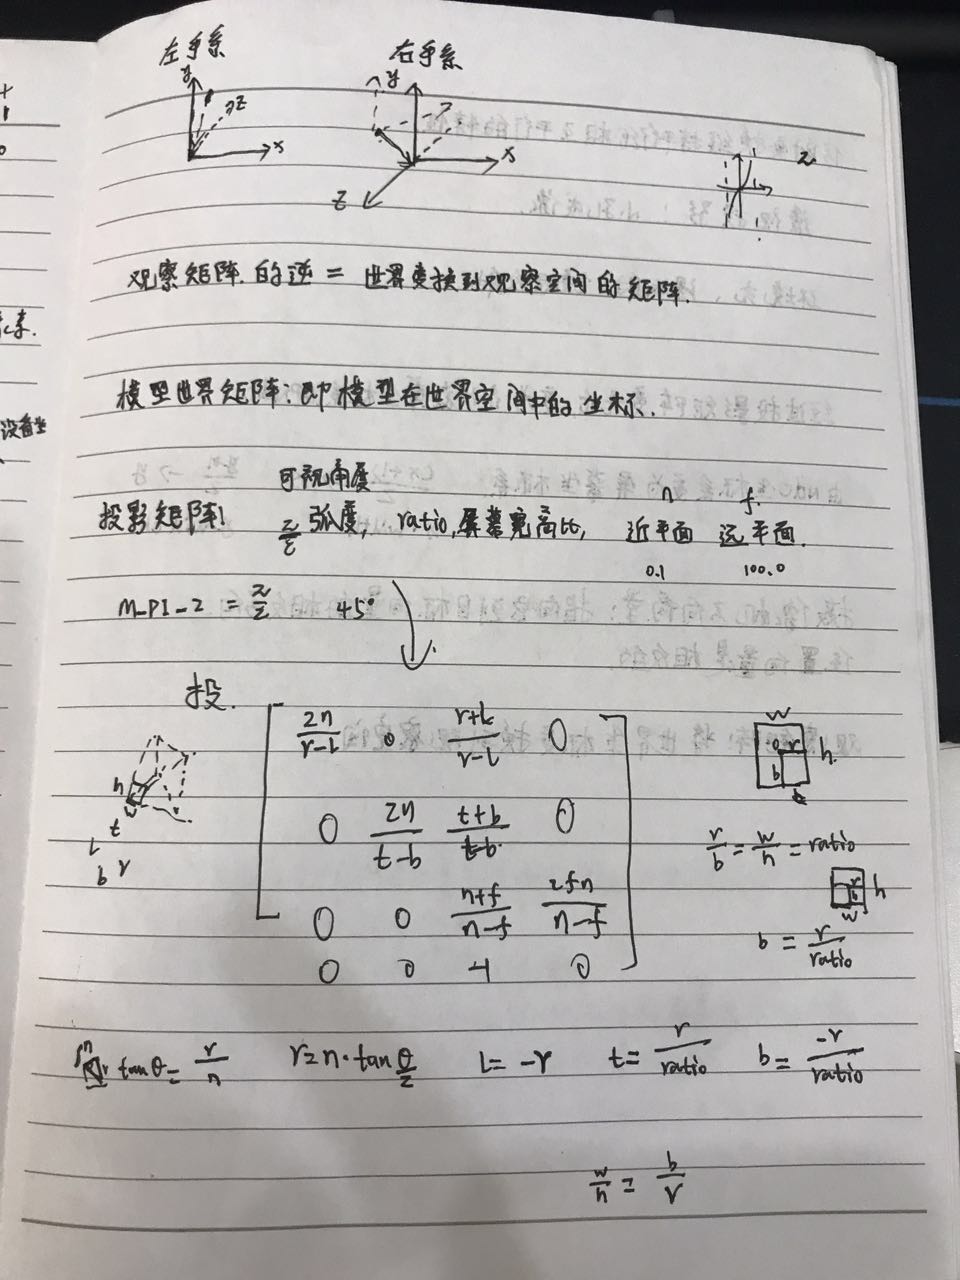 左手系 右手系
y z x
y x z
z
观察矩阵.的逆 = 世界变换到观察空间的矩阵.
模型世界矩阵:即模型在世界空间中的坐标.
可视角度 n f.
投影矩阵! 弧度, ratio,屏幕宽高比, 近平面 远平面.
0.1 100.0
M_PI_2 = π/2 45°
投.
2n/r-l 0 r+l/r-l 0
0 2n/t-b t+b/t-b 0
0 0 n+f/n-f 2fn/n-f
0 0 -1 0
h w t
l b r
w
o r h.
b
r/b = w/h = ratio
r h
b
w
b = r/ratio
tanθ = r/n r=n·tan θ/2 L= -r t= r/ratio b= -r/ratio
w/h = b/r
设备坐